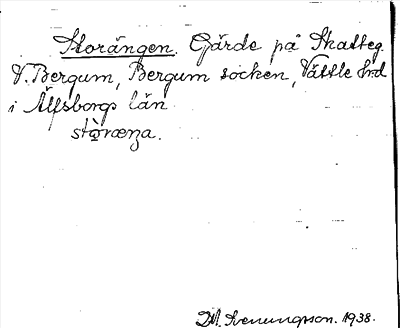 Storängen. Gärde på Skatteg.
V. Bergum, Bergum socken, Vättle hd
i Älfsborgs län
Svenungsson. 1938.